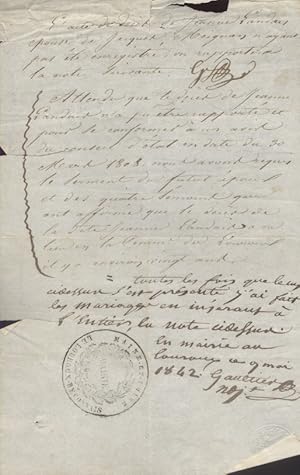 L'acte de décès de Jeanne Landais
épouse de Jacques Meignan n'ayant
pas été enregistré on rapportera
la note suivante.
Attendu que le décès de Jeanne
Landais n'a pu être rapporté et
pour se conformer à un avis
du conseil d'état en date du 30
Mars 1808, nous avons reçu
le serment du futur époux
et des quatre témoins qui
ont affirmé que le décès de
la dite Jeanne Landais a eu
lieu en la Commune du Louroux
il y a environ vingt ans
= toutes les fois que le cas
cidessus s'est présenté j'ai fait
les mariages en insérant à
l'Entier la note cidessus.
En mairie au
Louroux ce 9 mai
1842 Gaultier
adj.t
MAINE ET LOIRE
MAIRIE